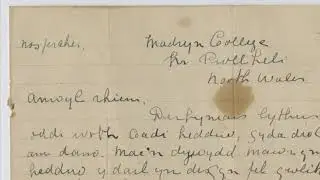 nos fercher.
Madryn College
Nr Pwllheli
North Wales
Annwyl rhieni,
Derbyniais lythur
oddi wrth Coedi heddiw, gyda diolch
am dano. Mae'n dywydd mawr yn
heddiw y dail yn disgyn fel gwlith